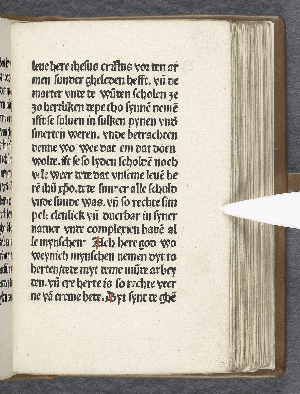 leue here ihesus cristus vor den ar
men sunder gheleden hefft. vn̄ de
marter vnde te wūten scholen ze
zo herttiken depe tho synnē nemē
ifft se suluen in sulken pynen vnd
smerten weren. vnde betrachten
denne wo wee dat em dat doen
wolte. ifte se so lyden scholdē noch
vele weer dede dat vnseme leuē he
rē ihū xp̄o. de de sunder alle schold
vnde sunde was. vn̄ so rechte sim
pel: clenlick vn̄ duerbar in syner
natuer vnde complexien bauē al
le mynschen. Ach here god wo
weynich mynschen nemen dyt to
herten, ede myt deme mūde
den. vn̄ ere herte is so rachte veer
ne vā deme here. Dyt synt de ghē